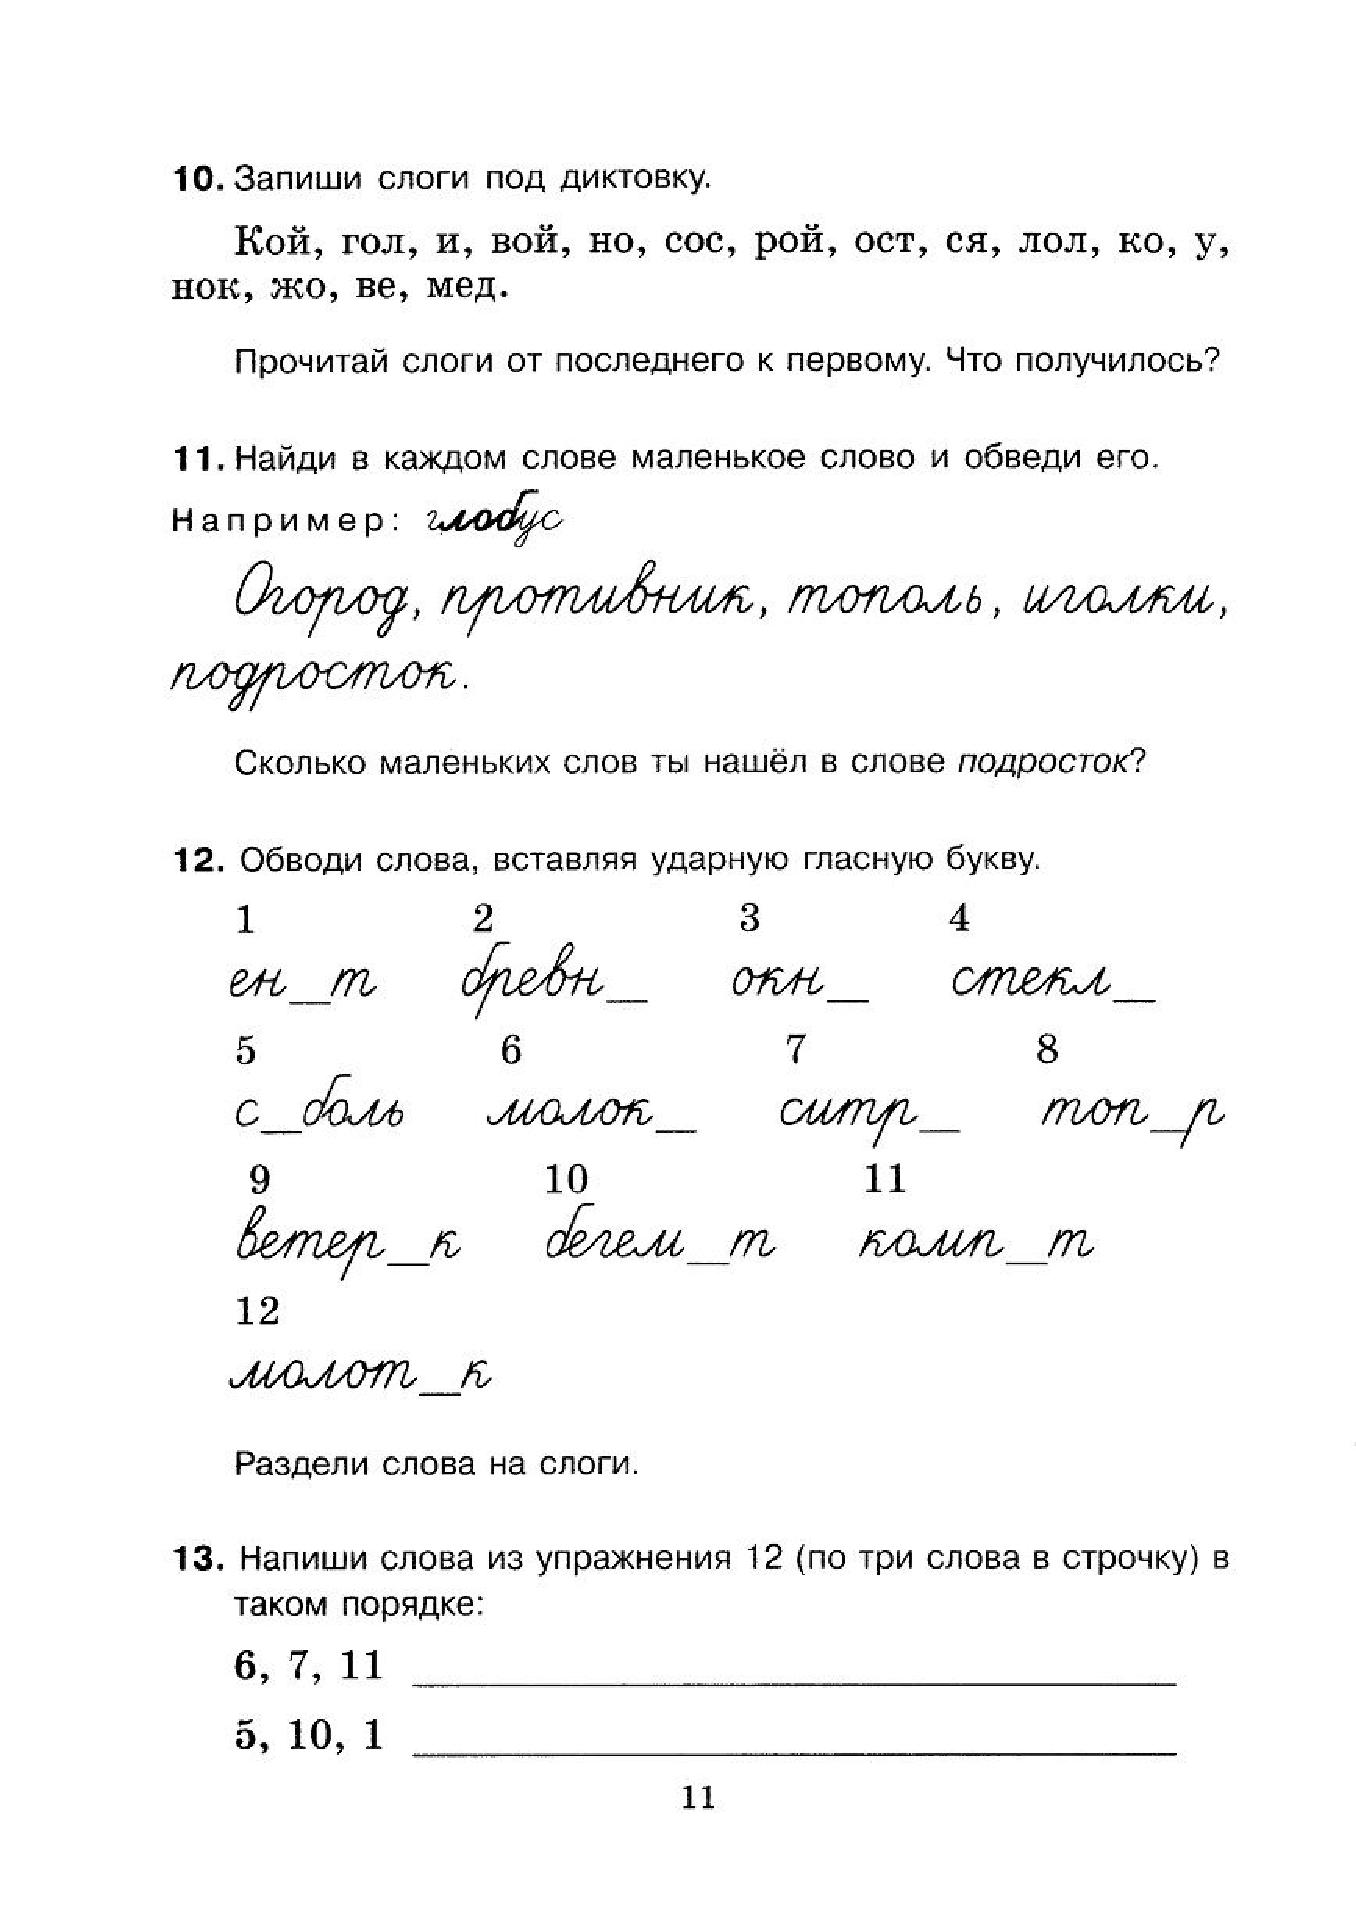 10. Запиши слоги под диктовку.
Кой, гол, и, вой, но, сос, рой, ост, ся, лол, ко, у,
нок, жо, ве, мед.
Прочитай слоги от последнего к первому. Что получилось?
11. Найди в каждом слове маленькое слово и обведи его.
Например: глобус
Огород, противник, тополь, иголки,
подросток.
Сколько маленьких слов ты нашёл в слове подросток?
12. Обводи слова, вставляя ударную гласную букву.
1 2 3 4
ен_т бревн_ окн_ стекл_
5 6 7 8
с_боль молок_ ситр_ топ_р
9 10 11
ветер_к бегем_т комп_т
12
молот_к
Раздели слова на слоги.
13. Напиши слова из упражнения 12 (по три слова в строчку) в
таком порядке:
6, 7, 11
5, 10, 1
11